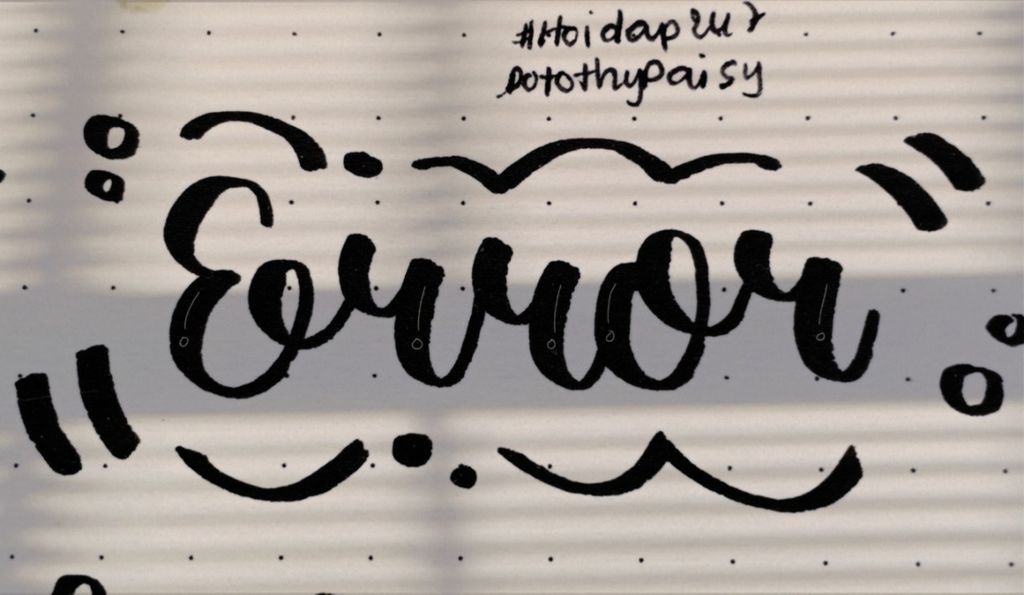 #Hoidap247
DotothyDaisy
Error